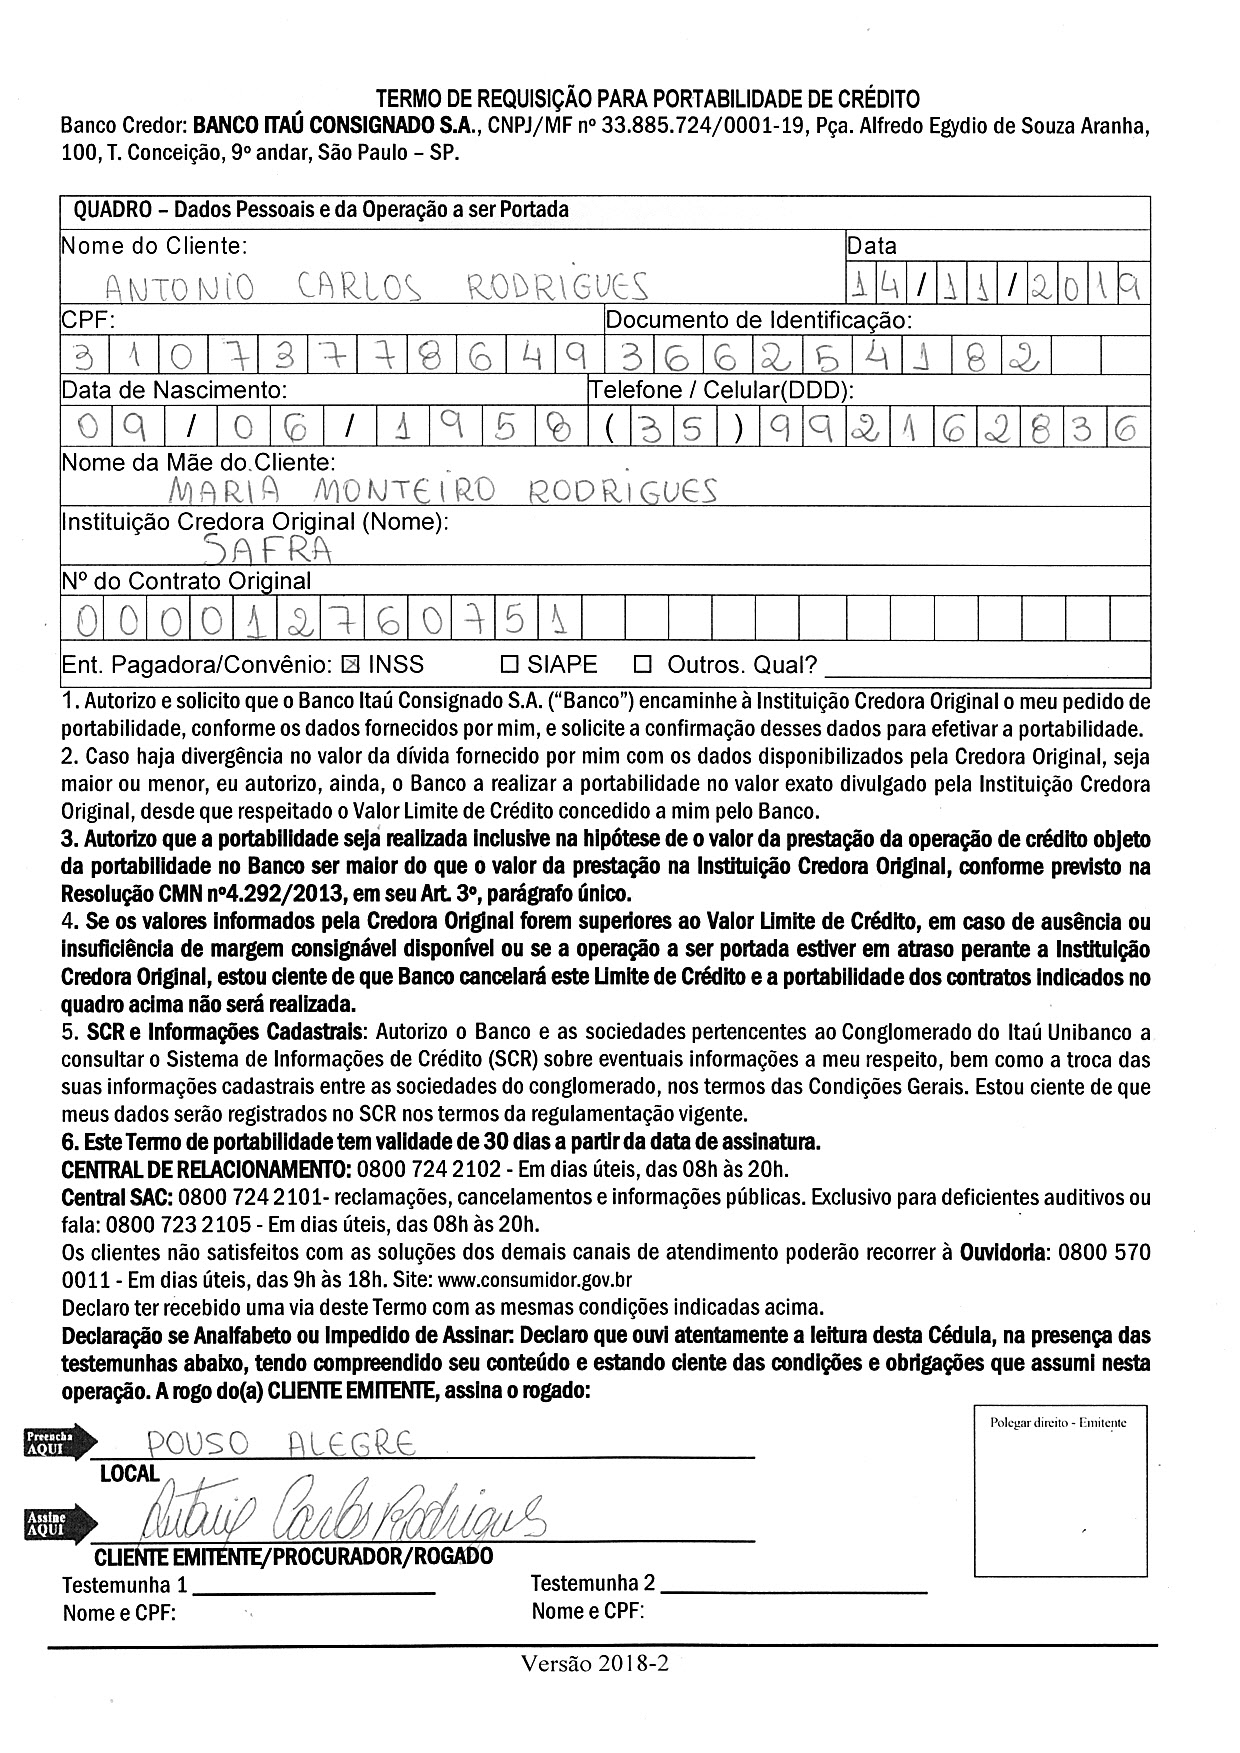 TERMO DE REQUISIÇÃO PARA PORTABILIDADE DE CRÉDITO
Banco Credor: BANCO ITAÚ CONSIGNADO S.A., CNPJ/MF nº 33.885.724/0001-19, Pça. Alfredo Egydio de Souza Aranha,
100, T. Conceição, 9º andar, São Paulo – SP.
QUADRO – Dados Pessoais e da Operação a ser Portada
Nome do Cliente: Data
ANTONIO CARLOS RODRIGUES 14/11/2019
CPF: Documento de Identificação:
31073778649 366254182
Data de Nascimento: Telefone / Celular(DDD):
09/06/1958 (35)992162836
Nome da Mãe do Cliente:
MARIA MONTEIRO RODRIGUES
Instituição Credora Original (Nome):
SAFRA
Nº do Contrato Original
000012760751
Ent. Pagadora/Convênio: ☒ INSS ☐ SIAPE ☐ Outros. Qual?
1. Autorizo e solicito que o Banco Itaú Consignado S.A. (“Banco”) encaminhe à Instituição Credora Original o meu pedido de
portabilidade, conforme os dados fornecidos por mim, e solicite a confirmação desses dados para efetivar a portabilidade.
2. Caso haja divergência no valor da dívida fornecido por mim com os dados disponibilizados pela Credora Original, seja
maior ou menor, eu autorizo, ainda, o Banco a realizar a portabilidade no valor exato divulgado pela Instituição Credora
Original, desde que respeitado o Valor Limite de Crédito concedido a mim pelo Banco.
3. Autorizo que a portabilidade seja realizada inclusive na hipótese de o valor da prestação da operação de crédito objeto
da portabilidade no Banco ser maior do que o valor da prestação na Instituição Credora Original, conforme previsto na
Resolução CMN nº4.292/2013, em seu Art. 3º, parágrafo único.
4. Se os valores informados pela Credora Original forem superiores ao Valor Limite de Crédito, em caso de ausência ou
insuficiência de margem consignável disponível ou se a operação a ser portada estiver em atraso perante a Instituição
Credora Original, estou ciente de que Banco cancelará este Limite de Crédito e a portabilidade dos contratos indicados no
quadro acima não será realizada.
5. SCR e Informações Cadastrais: Autorizo o Banco e as sociedades pertencentes ao Conglomerado do Itaú Unibanco a
consultar o Sistema de Informações de Crédito (SCR) sobre eventuais informações a meu respeito, bem como a troca das
suas informações cadastrais entre as sociedades do conglomerado, nos termos das Condições Gerais. Estou ciente de que
meus dados serão registrados no SCR nos termos da regulamentação vigente.
6. Este Termo de portabilidade tem validade de 30 dias a partir da data de assinatura.
CENTRAL DE RELACIONAMENTO: 0800 724 2102 - Em dias úteis, das 08h às 20h.
Central SAC: 0800 724 2101- reclamações, cancelamentos e informações públicas. Exclusivo para deficientes auditivos ou
fala: 0800 723 2105 - Em dias úteis, das 08h às 20h.
Os clientes não satisfeitos com as soluções dos demais canais de atendimento poderão recorrer à Ouvidoria: 0800 570
0011 - Em dias úteis, das 9h às 18h. Site: www.consumidor.gov.br
Declaro ter recebido uma via deste Termo com as mesmas condições indicadas acima.
Declaração se Analfabeto ou Impedido de Assinar: Declaro que ouvi atentamente a leitura desta Cédula, na presença das
testemunhas abaixo, tendo compreendido seu conteúdo e estando ciente das condições e obrigações que assumi nesta
operação. A rogo do(a) CLIENTE EMITENTE, assina o rogado:
Polegar direito - Emitente
Preencha
AQUI
POUSO ALEGRE
LOCAL
Assine
AQUI
Antonio Carlos Rodrigues
CLIENTE EMITENTE/PROCURADOR/ROGADO
Testemunha 1 Testemunha 2
Nome e CPF: Nome e CPF:
Versão 2018-2